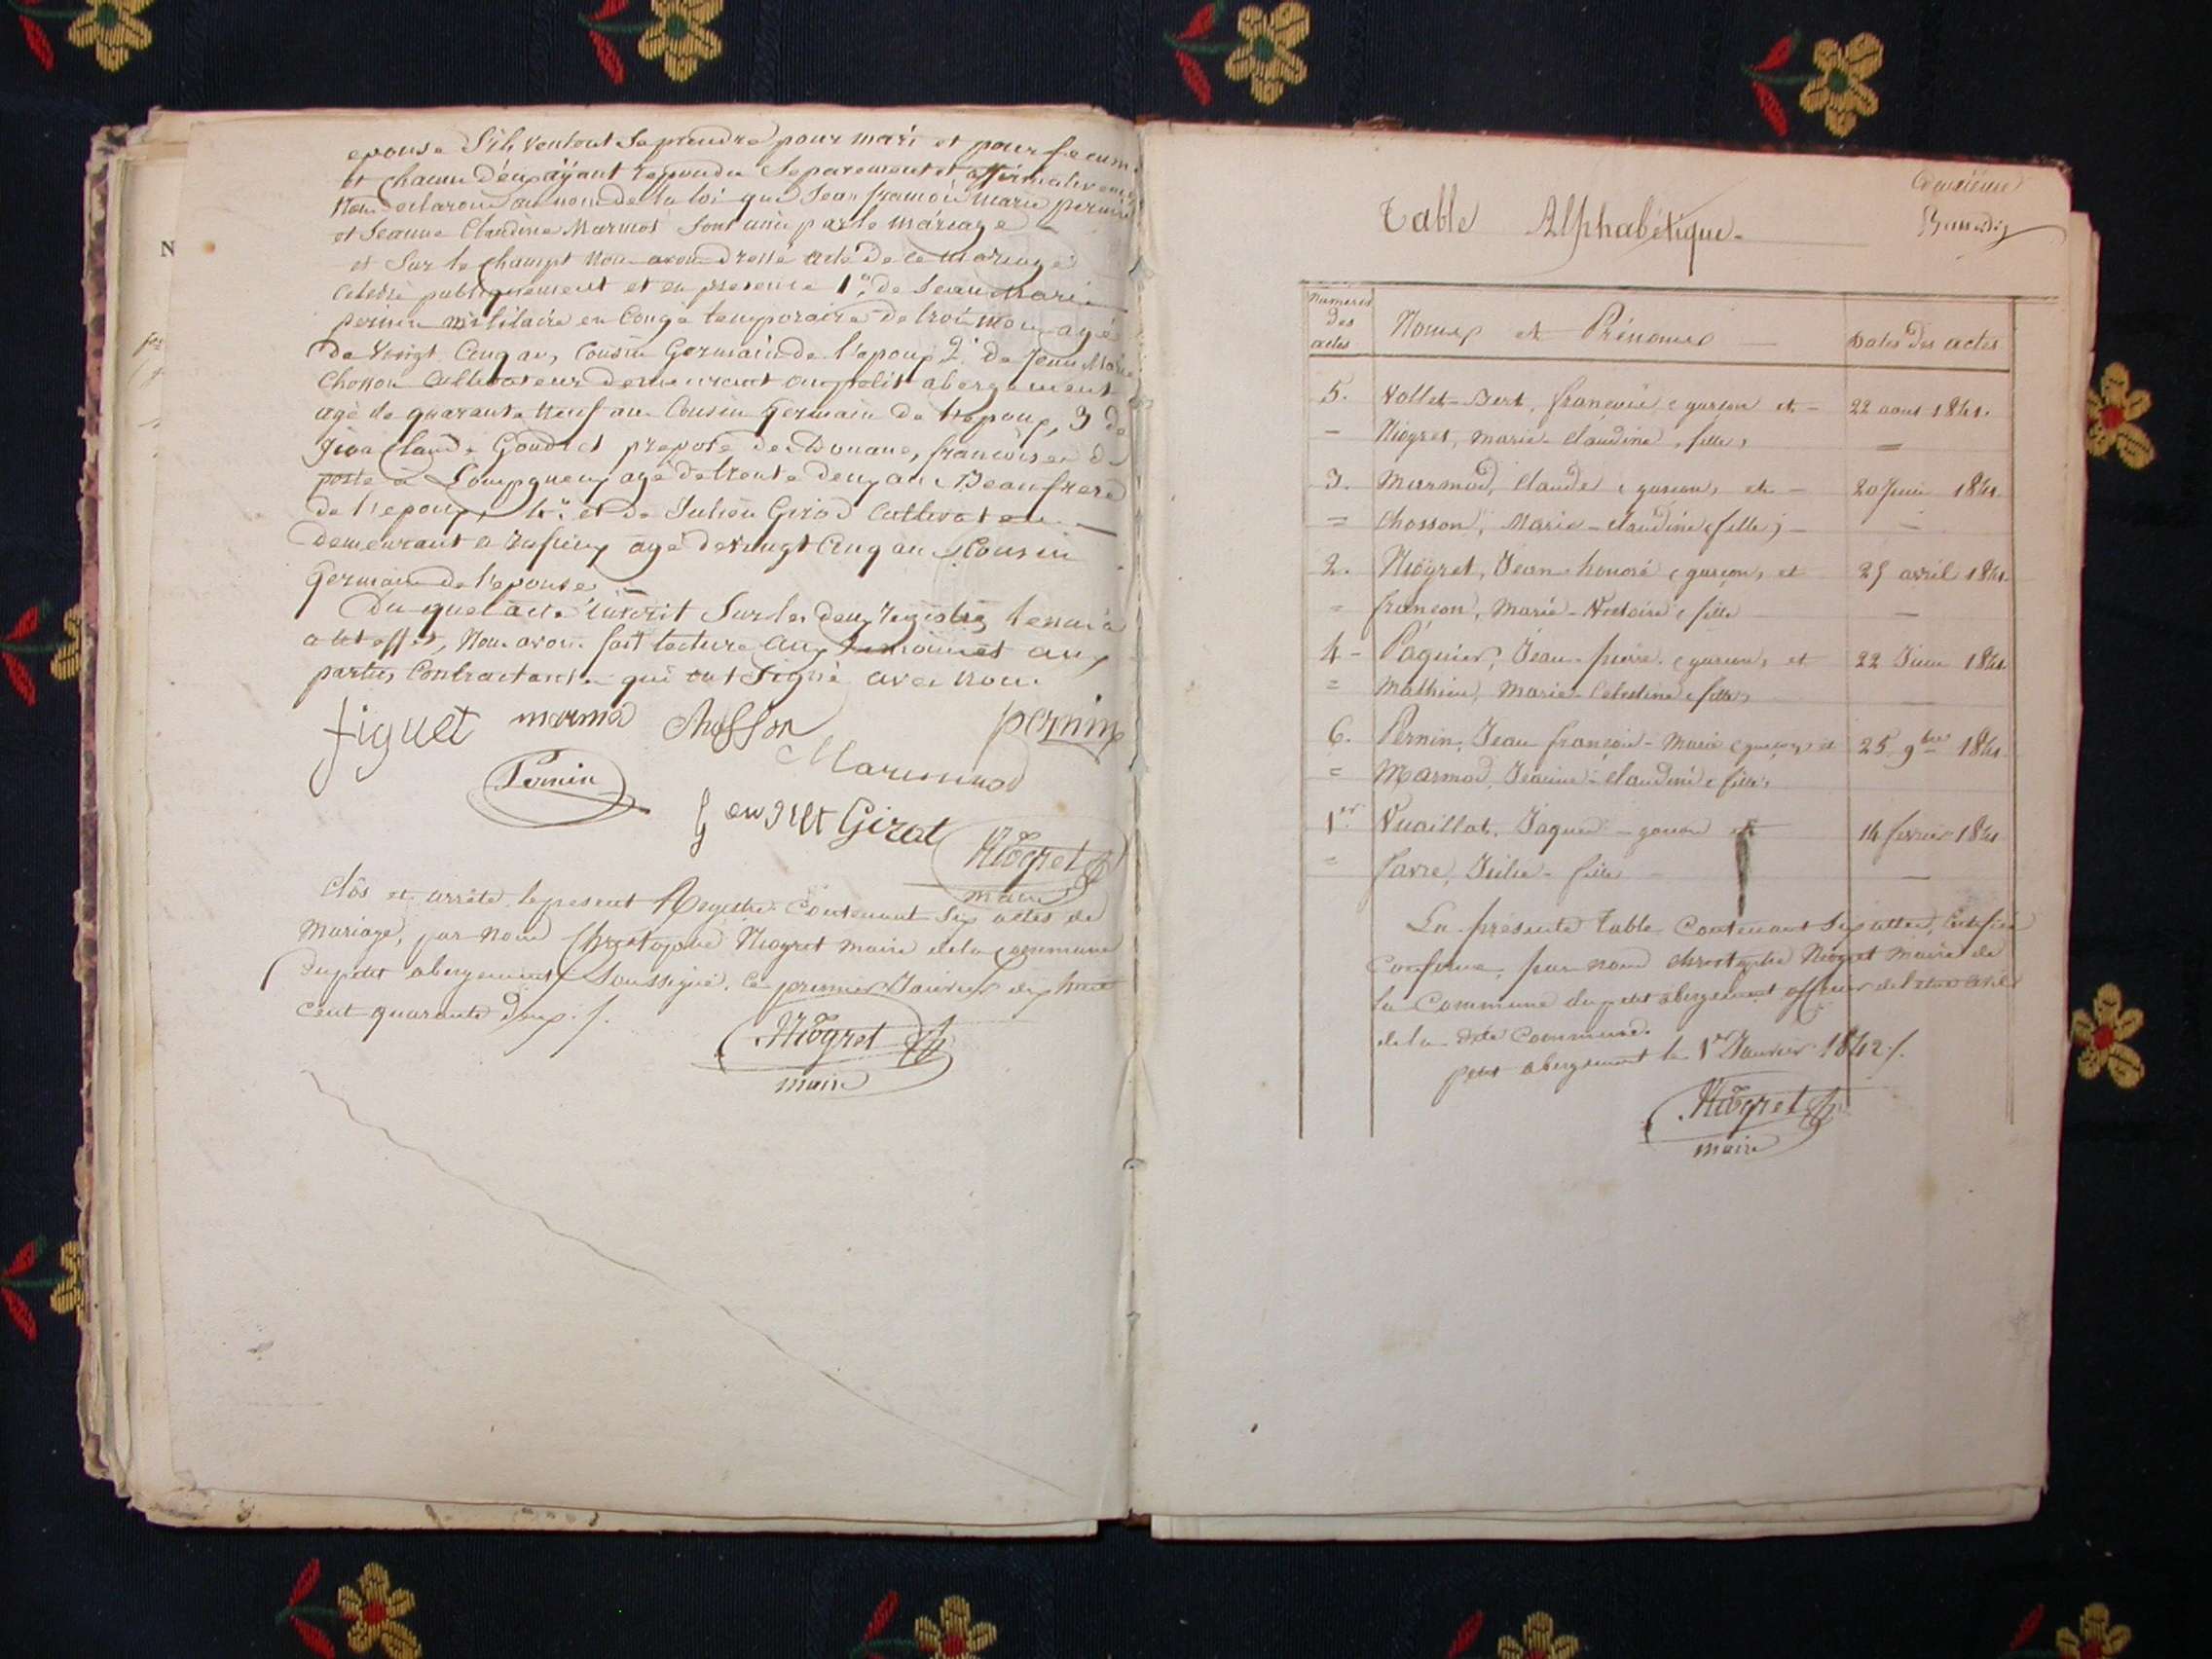 epouse S'ils veulent se prendre pour mari et pour femme
et chacun d'eux ayant repondu Séparement et affirmativement
Nous declarons au nom de la loi que Jean françois marie pernin
et Jeanne Claudine Marmod Sont unis par le mariage
et Sur le champt Nous avons dressé acte de ce mariage
Celebré publiquement et en presence 1° de Jean Marie
pernin militaire en Congé temporaire de trois mois agé
de Vingt Cinq ans, Cousin Germain de l'epoux 2° de Jean Marie
Chosson Cultivateur demeurant au petit abergement
agé de quarante Neuf ans Cousin Germain de l'epoux, 3 de
Jean Claude Goudet preposé des Douane, françoises de
poste à agé de trente deux ans Beau frere
de l'epoux, 4° et de Julien Girod Cultivateur
demeurant a agé de vingt Cinq ans Cousin
Germain de l'epouse
Du quel acte inscrit Sur les deux registres tenus à
a cet effet, Nous avons fait lecture aux temoins et aux
parties Contractantes qui ont Signé avec nous
figuet marmod Chosson pernin
Marmod
Pernin
Girod
Niogret
maire
Clôs et arrêté le present Registre Contenant Six actes de
Mariage, par nous Christophe Niogret maire de la Commune
du petit abergement Soussigné, ce premier Janvier dix huit
Cent quarante deux ./.
Niogret
maire
N
Table Alphabétique
Numeros
des
actes
Noms et Prénoms
Dates des actes
5. Vollet-Bert, françois (garçon) et 22 aout 1841.
– Niogret, marie-Claudine, fille, =
3. Marmod, Claude (garçon) et – 20 Juin 1841
= Chosson, Marie-claudine (fille) – –
2. Niogret, Jean-honoré (garçon) et 25 avril 1841
= françon, Marie-Victoire (fille –
4 – Paquier, Jean-pierre (garçon) et 22 Juin 1841
= Mathieu, Marie-Celestine (fille) –
6. Pernin, Jean françois-Marie (garçon) et 25 9bre 1841
= Marmod, Jeanne-Claudine (fille)
1er Vuaillat, Jaques – garçon et 14 fevrier 1841
= favre, Julie – fille –
La présente Table Contenant Six actes, Certifiée
Conforme, par nous christophe Niogret maire de
la Commune du petit abergement officier de l'état civil
de la dite Commune.
petit abergement le 1er Janvier 1842 ./.
Niogret
maire